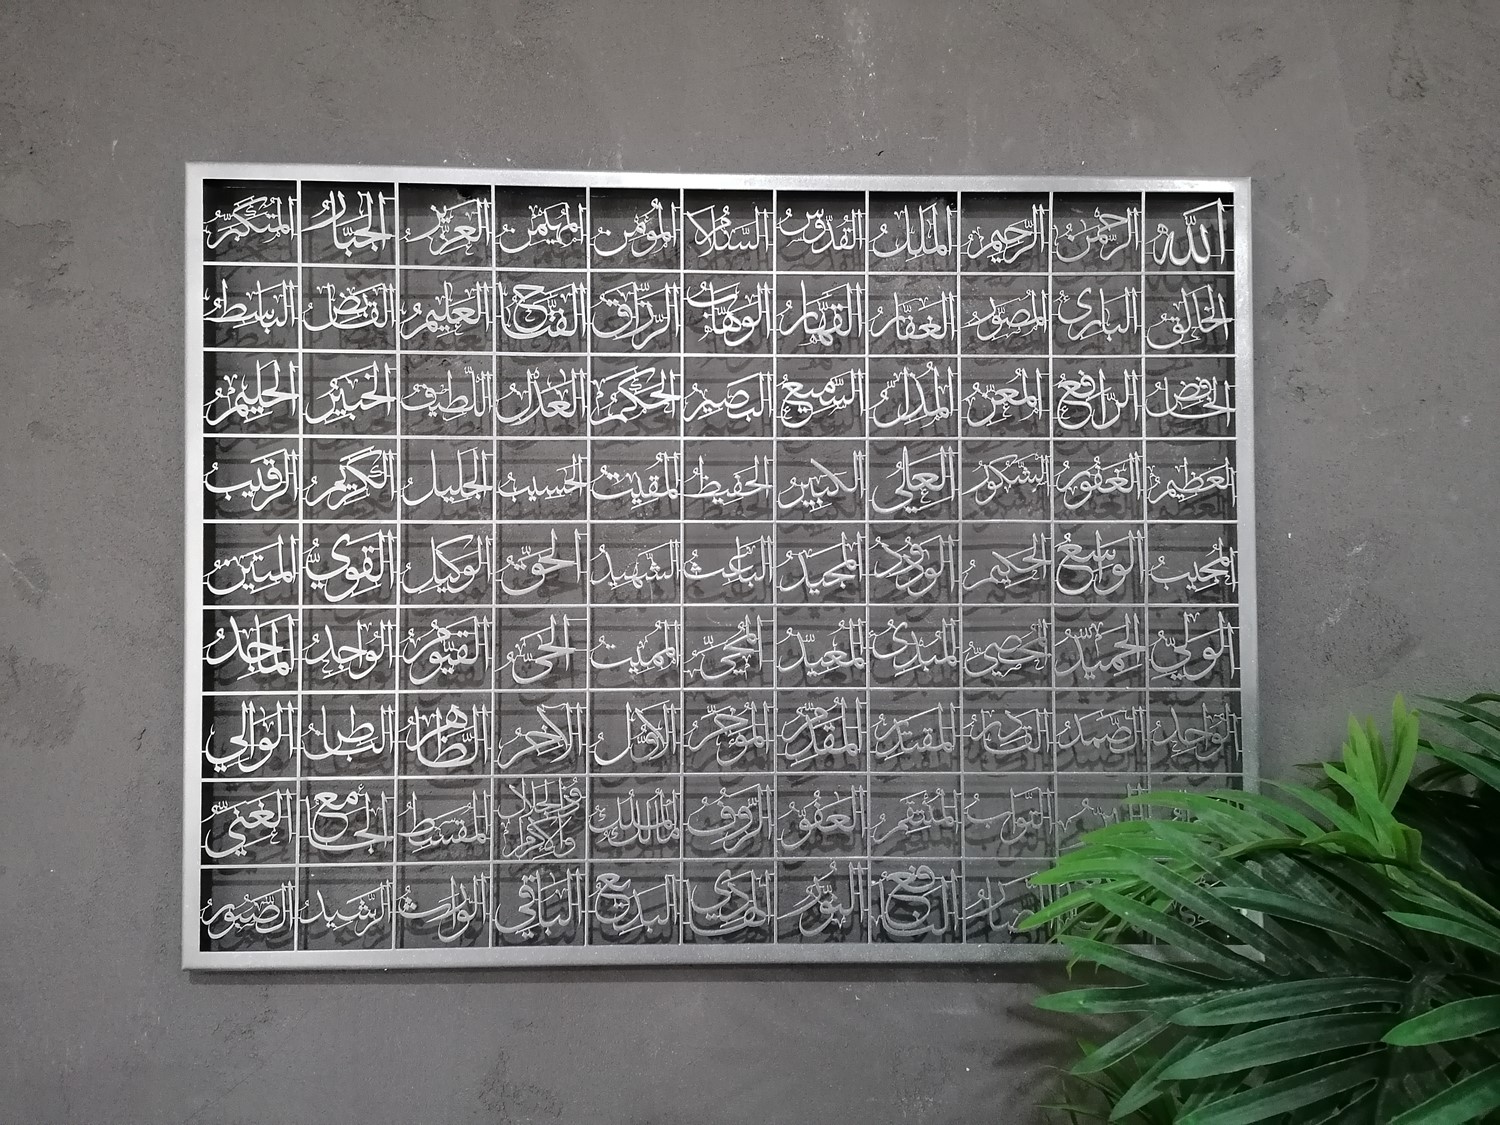 الله الرحمن الرحيم الملك القدوس السلام المؤمن المهيمن العزيز الجبار المتكبر
الخالق البارئ المصور الغفار القهار الوهاب الرزاق الفتاح العليم القابض الباسط
الخافض الرافع المعز المذل السميع البصير الحكم العدل اللطيف الخبير الحليم
العظيم الغفور الشكور العلي الكبير الحفيظ المقيت الحسيب الجليل الكريم الرقيب
المجيب الواسع الحكيم الودود المجيد الباعث الشهيد الحق الوكيل القوي المتين
الولي الحميد المحصي المبدئ المعيد المحيي المميت الحي القيوم الواجد الماجد
الواحد الصمد القادر المقتدر المقدم المؤخر الأول الآخر الظاهر الباطن الوالي
التواب المنتقم العفو الرؤوف مالك الملك ذو الجلال والإكرام المقسط الجامع الغني
النافع النور الهادي البديع الباقي الوارث الرشيد الصبور